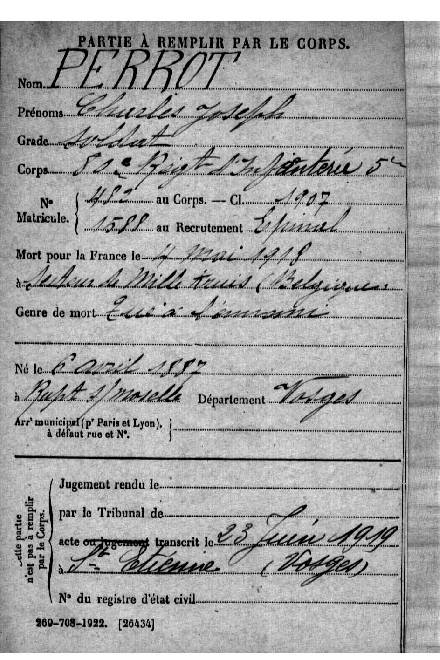 PARTIE À REMPLIR PAR LE CORPS.
Nom PERROT
Prénoms Charles Joseph
Grade Soldat
Corps Régt d'Infanterie
Nº Matricule. { 482 au Corps. — Cl. 1907
1588 au Recrutement Epinal
Mort pour la France le 4 mai 1918
à Secteur de Mille Kruis (Belgique)
Genre de mort Tué à l'ennemi
Né le 6 avril 1887
à Rupt s/ Moselle Département Vosges
Arrᵗ municipal (pʳ Paris et Lyon), à défaut rue et Nº.
Cette partie n'est pas à remplir par le Corps.
Jugement rendu le
par le Tribunal de
acte ou jugement transcrit le 23 Juin 1919
à St Etienne (Vosges)
Nº du registre d'état civil
269-708-1922. [26434]